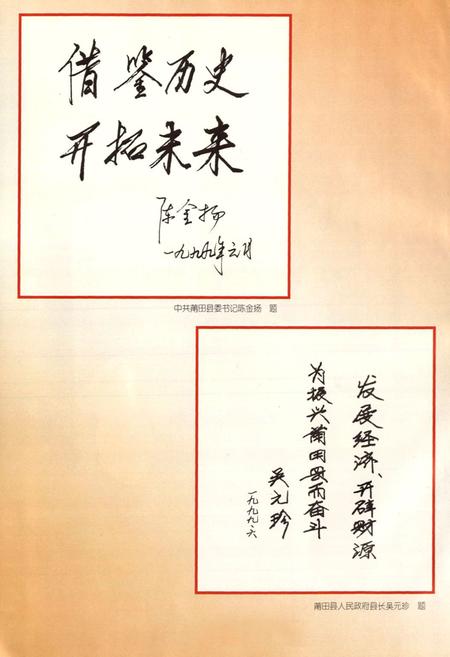 借鉴历史
开拓未来
陈金扬
一九九九年六月
中共莆田县委书记陈金扬　题
发展经济、开辟财源
为振兴莆田县而奋斗
吴元珍
一九九九.六
莆田县人民政府县长吴元珍　题